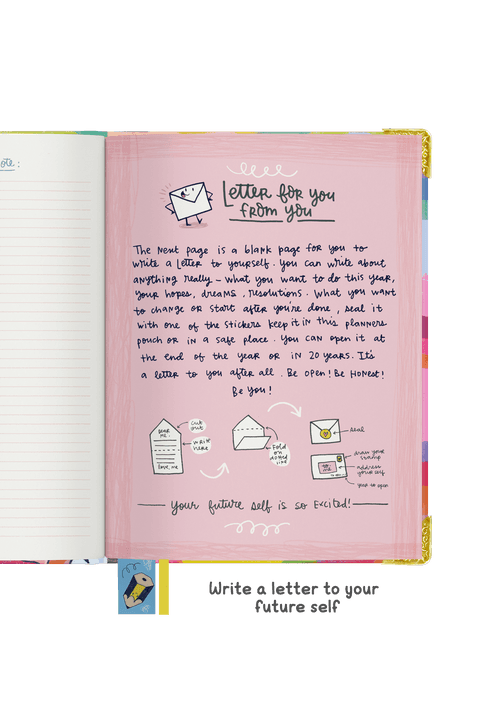 ote:
Letter for you
from you
The next page is a blank page for you to
write a letter to yourself. You can write about
anything really - what you want to do this year,
your hopes, dreams, resolutions. What you want
to change or start after you're done, seal it
with one of the stickers keep it in this planners
pouch or in a safe place. You can open it at
the end of the year or in 20 years. It's
a letter to you after all. Be open! Be Honest!
Be you!
Dear me:
love, me
cut out
write here
Fold on dotted line
seal
draw your stamp
to: me
address yourself
your future self is so excited!
Write a letter to your
future self